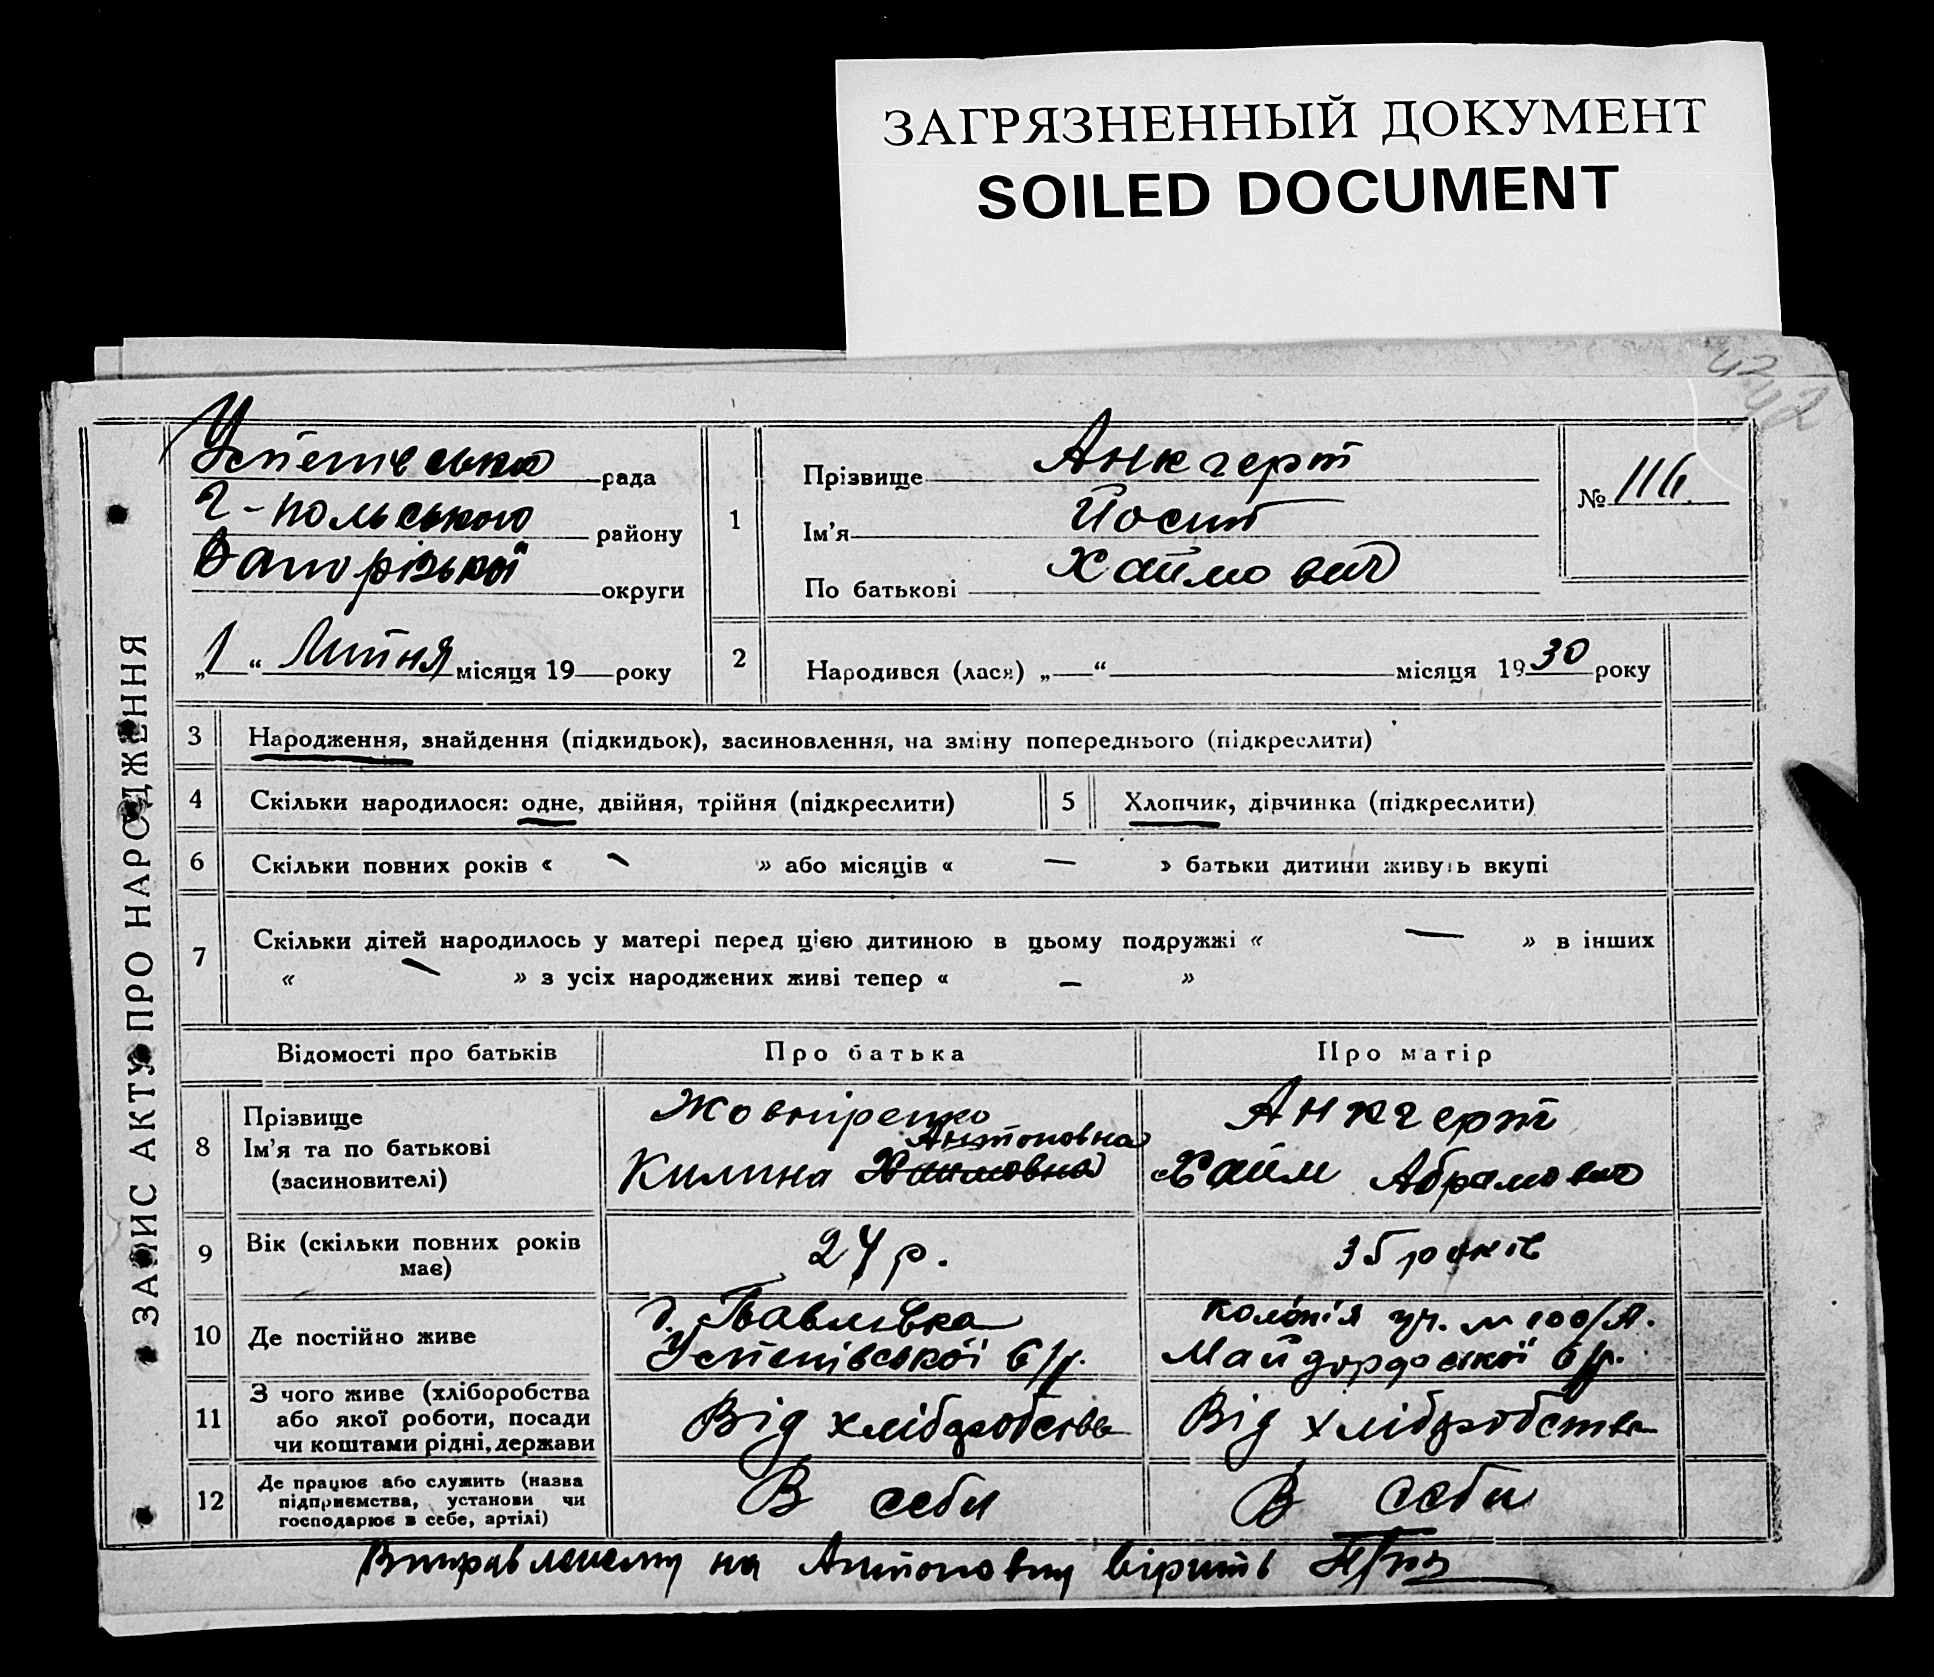 ЗАГРЯЗНЕННЫЙ ДОКУМЕНТ
SOILED DOCUMENT
ЗАПИС АКТУ ПРО НАРОДЖЕННЯ
Успенівська рада
Г-польського району
Запорізької округи
„1“ Липня місяця 19 року
1
Прізвище Анкгерт
Ім'я Йосип
По батькові Хаймович
№ 116
2 Народився (лася) „—“ місяця 1930 року
3 Народження, знайдення (підкидьок), засиновлення, на зміну попереднього (підкреслити)
4 Скільки народилося: одне, двійня, трійня (підкреслити) 5 Хлопчик, дівчинка (підкреслити)
6 Скільки повних років « — » або місяців « — » батьки дитини живуть вкупі
7 Скільки дітей народилось у матері перед цією дитиною в цьому подружжі « — » в інших
« — » з усіх народжених живі тепер « — »
Відомості про батьків Про батька Про матір
8 Прізвище
Ім'я та по батькові
(засиновителі)
Жовніренко
Антоновна
Килина Хаимовна
Анкгерт
Хайм Абрамович
9 Вік (скільки повних років
має)
24 р.
35 років
10 Де постійно живе
д. Павлівка
Успенівської с/р.
колонія уч. № 100/А.
Майдорфської с/р.
11 З чого живе (хліборобства
або якої роботи, посади
чи коштами рідні, держави
Від хліборобства
Від хліборобства
12 Де працює або служить (назва
підприємства, установи чи
господарює в себе, артілі)
В себи
В себи
Виправленому на Антоновну вірить